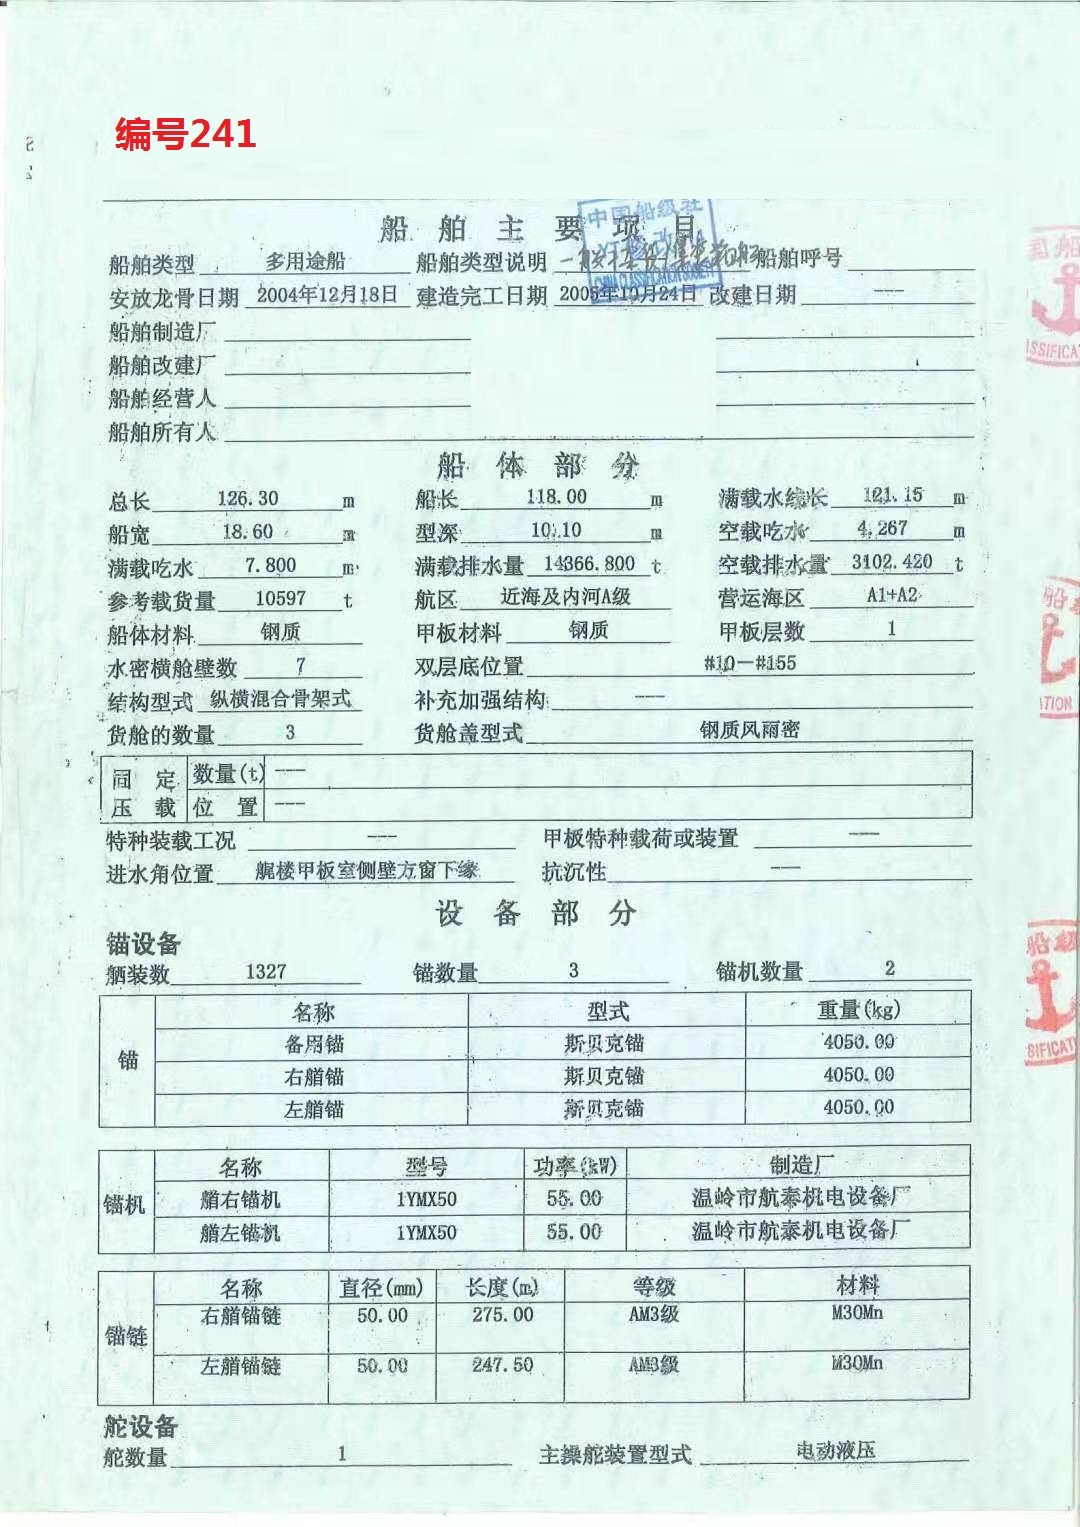 编号241
船舶主要项目
中国船级社
船舶类型 多用途船 船舶类型说明 船舶呼号
CHINA CLASSIFICATION SOCIETY
安放龙骨日期 2004年12月18日 建造完工日期 2005年10月24日 改建日期 ---
船舶制造厂
船舶改建厂
船舶经营人
船舶所有人
船体部分
总长 126.30 m 船长 118.00 m 满载水线长 121.15 m
船宽 18.60 m 型深 10.10 m 空载吃水 4.267 m
满载吃水 7.800 m 满载排水量 14366.800 t 空载排水量 3102.420 t
参考载货量 10597 t 航区 近海及内河A级 营运海区 A1+A2
船体材料 钢质 甲板材料 钢质 甲板层数 1
水密横舱壁数 7 双层底位置 #10—#155
结构型式 纵横混合骨架式 补充加强结构 ---
货舱的数量 3 货舱盖型式 钢质风雨密
固定压载 数量(t) ---
位置 ---
特种装载工况 --- 甲板特种载荷或装置 ---
进水角位置 艉楼甲板室侧壁方窗下缘 抗沉性 ---
设备部分
锚设备
舾装数 1327 锚数量 3 锚机数量 2
锚 名称 型式 重量(kg)
备用锚 斯贝克锚 4050.00
右艏锚 斯贝克锚 4050.00
左艏锚 斯贝克锚 4050.00
锚机 名称 型号 功率(kW) 制造厂
艏右锚机 1YMX50 55.00 温岭市航泰机电设备厂
艏左锚机 1YMX50 55.00 温岭市航泰机电设备厂
锚链 名称 直径(mm) 长度(m) 等级 材料
右艏锚链 50.00 275.00 AM3级 M30Mn
左艏锚链 50.00 247.50 AM3级 M30Mn
舵设备
舵数量 1 主操舵装置型式 电动液压